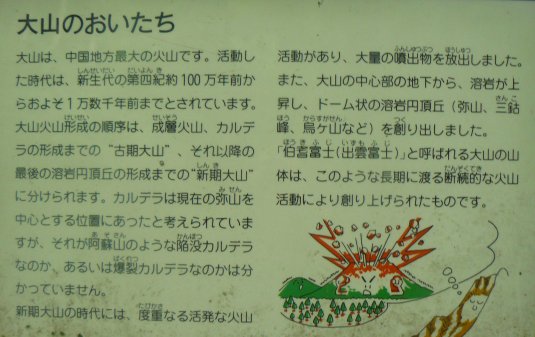 大山のおいたち
大山は、中国地方最大の火山です。活動し
た時代は、新生代の第四紀約100万年前か
らおよそ1万数千年前までとされています。
大山火山形成の順序は、成層火山、カルデ
ラの形成までの“古期大山”、それ以降の
最後の溶岩円頂丘の形成までの“新期大山”
に分けられます。カルデラは現在の弥山を
中心とする位置にあったと考えられていま
すが、それが阿蘇山のような陥没カルデラ
なのか、あるいは爆裂カルデラなのかは分
かっていません。
新期大山の時代には、度重なる活発な火山
活動があり、大量の噴出物を放出しました。
また、大山の中心部の地下から、溶岩が上
昇し、ドーム状の溶岩円頂丘（弥山、三鈷
峰、烏ケ山など）を創り出しました。
「伯耆富士（出雲富士）」と呼ばれる大山の山
体は、このような長期に渡る断続的な火山
活動により創り上げられたものです。